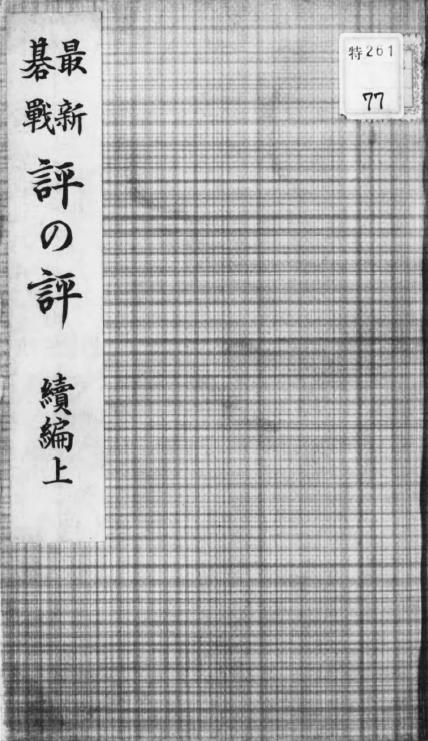 最新
碁戰
評の評
續編上
特261
77